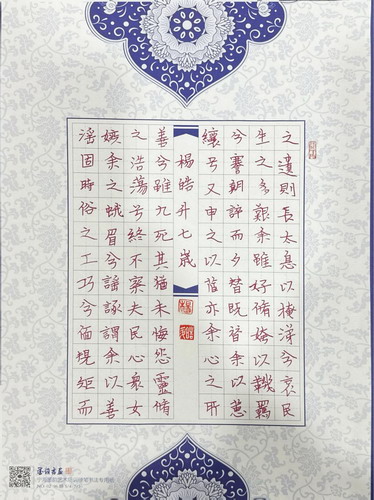 之遺則長太息以掩涕兮哀民
生之多艱余雖好脩姱以鞿羈
兮謇朝誶而夕替既替余以蕙
纕兮又申之以茝亦余心之所
楊皓升七歲
善兮雖九死其猶未悔怨靈脩
之浩蕩兮終不察夫民心眾女
嫉余之蛾眉兮謠諑謂余以善
淫固時俗之工巧兮偭規矩而